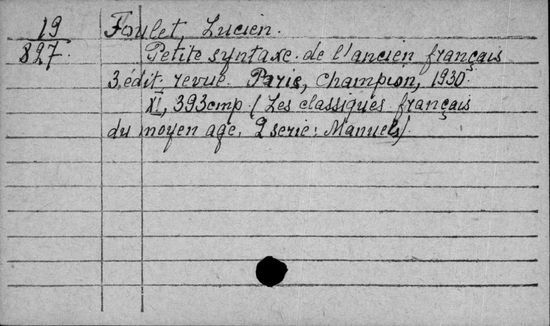 19
827.
Foulet, Lucien.
Petite syntaxe de l'ancien français
3 édit. revue. Paris, Champion, 1930.
XI, 393cmp (Les classiques français
du moyen age. 2 serie: Manuels).